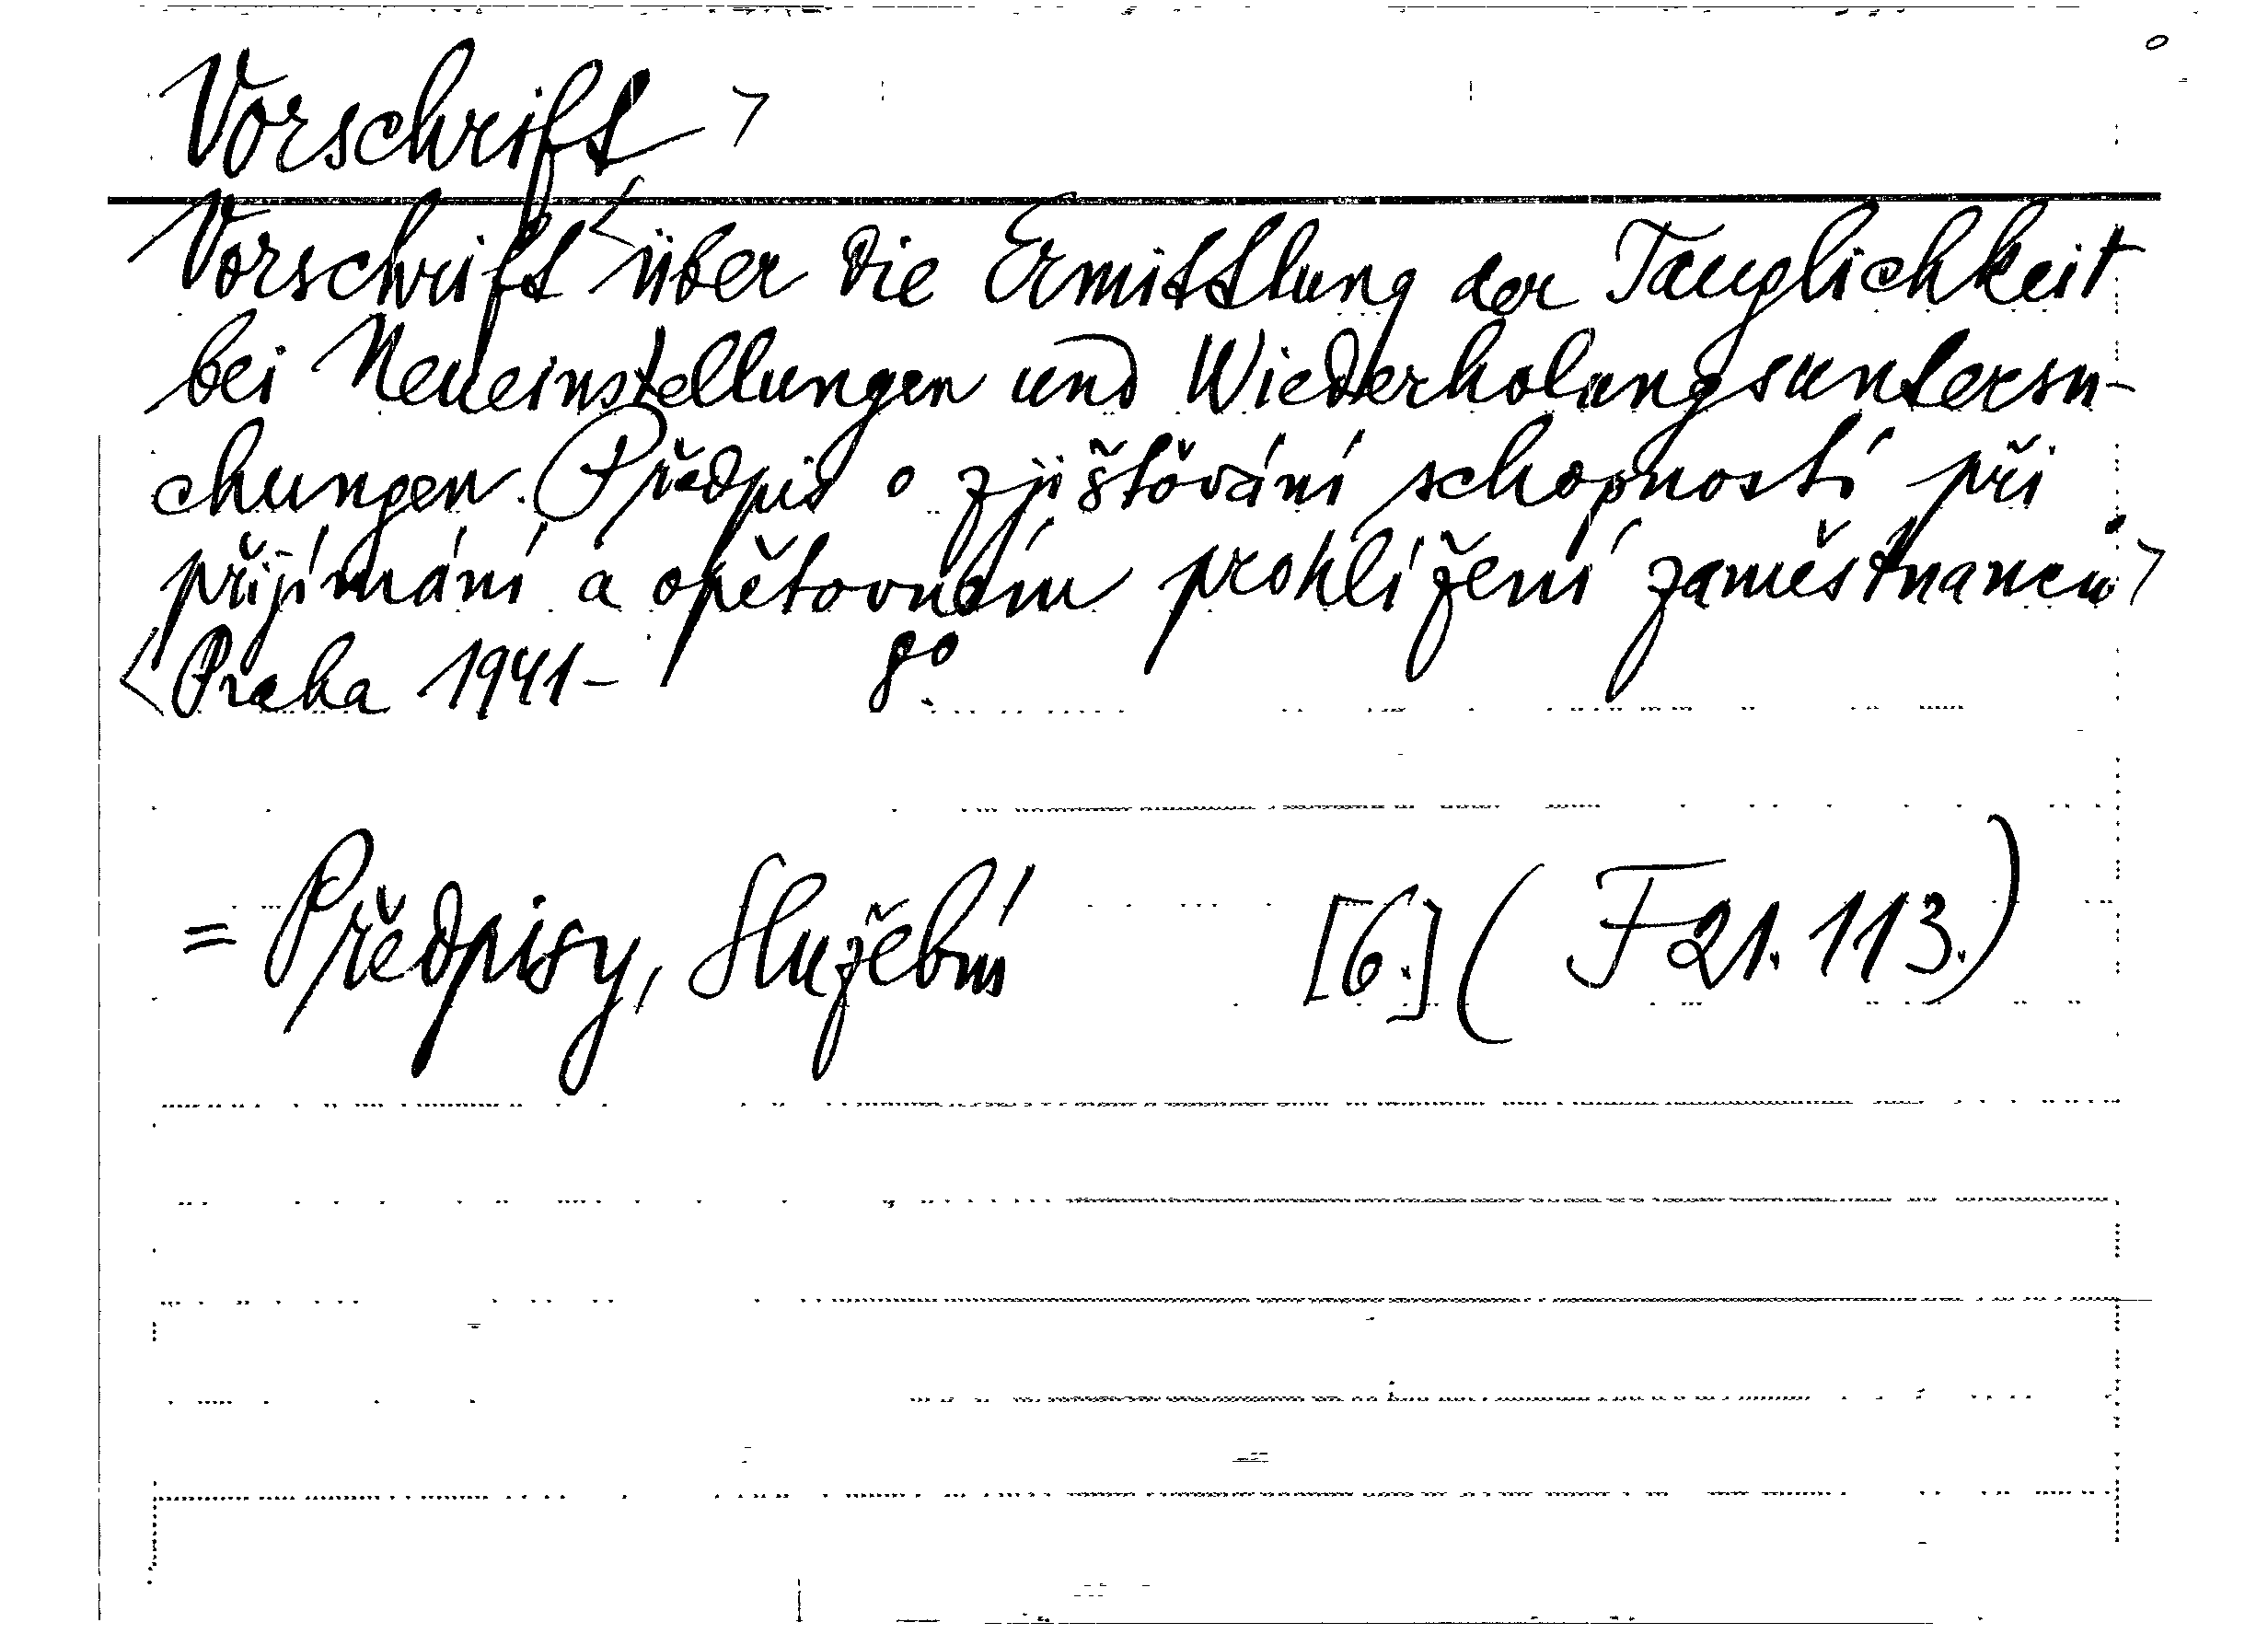 Vorschrift >
Vorschrift < über die Ermittlung der Tauglichkeit
bei Neueinstellungen und Wiederholungsuntersu-
chungen. Předpis o zjišťování schopností při
přijímání a opětovném prohlížení zaměstnanců >
< Praha 1941- 8°.
= Předpisy, Služební [6.] ( F 21. 113.)